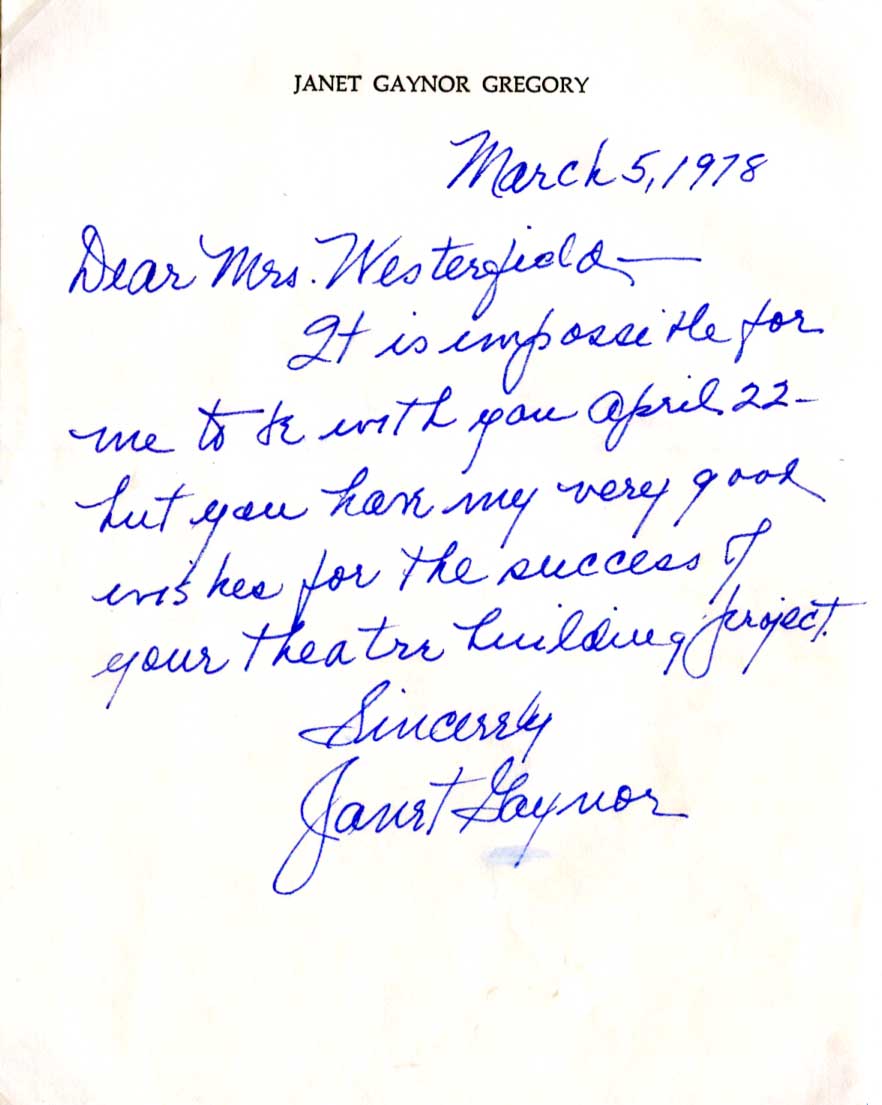 JANET GAYNOR GREGORY
March 5, 1978
Dear Mrs. Westerfield —
It is impossible for
me to be with you April 22 -
but you have my very good
wishes for the success of
your theatre building project.
Sincerely
Janet Gaynor